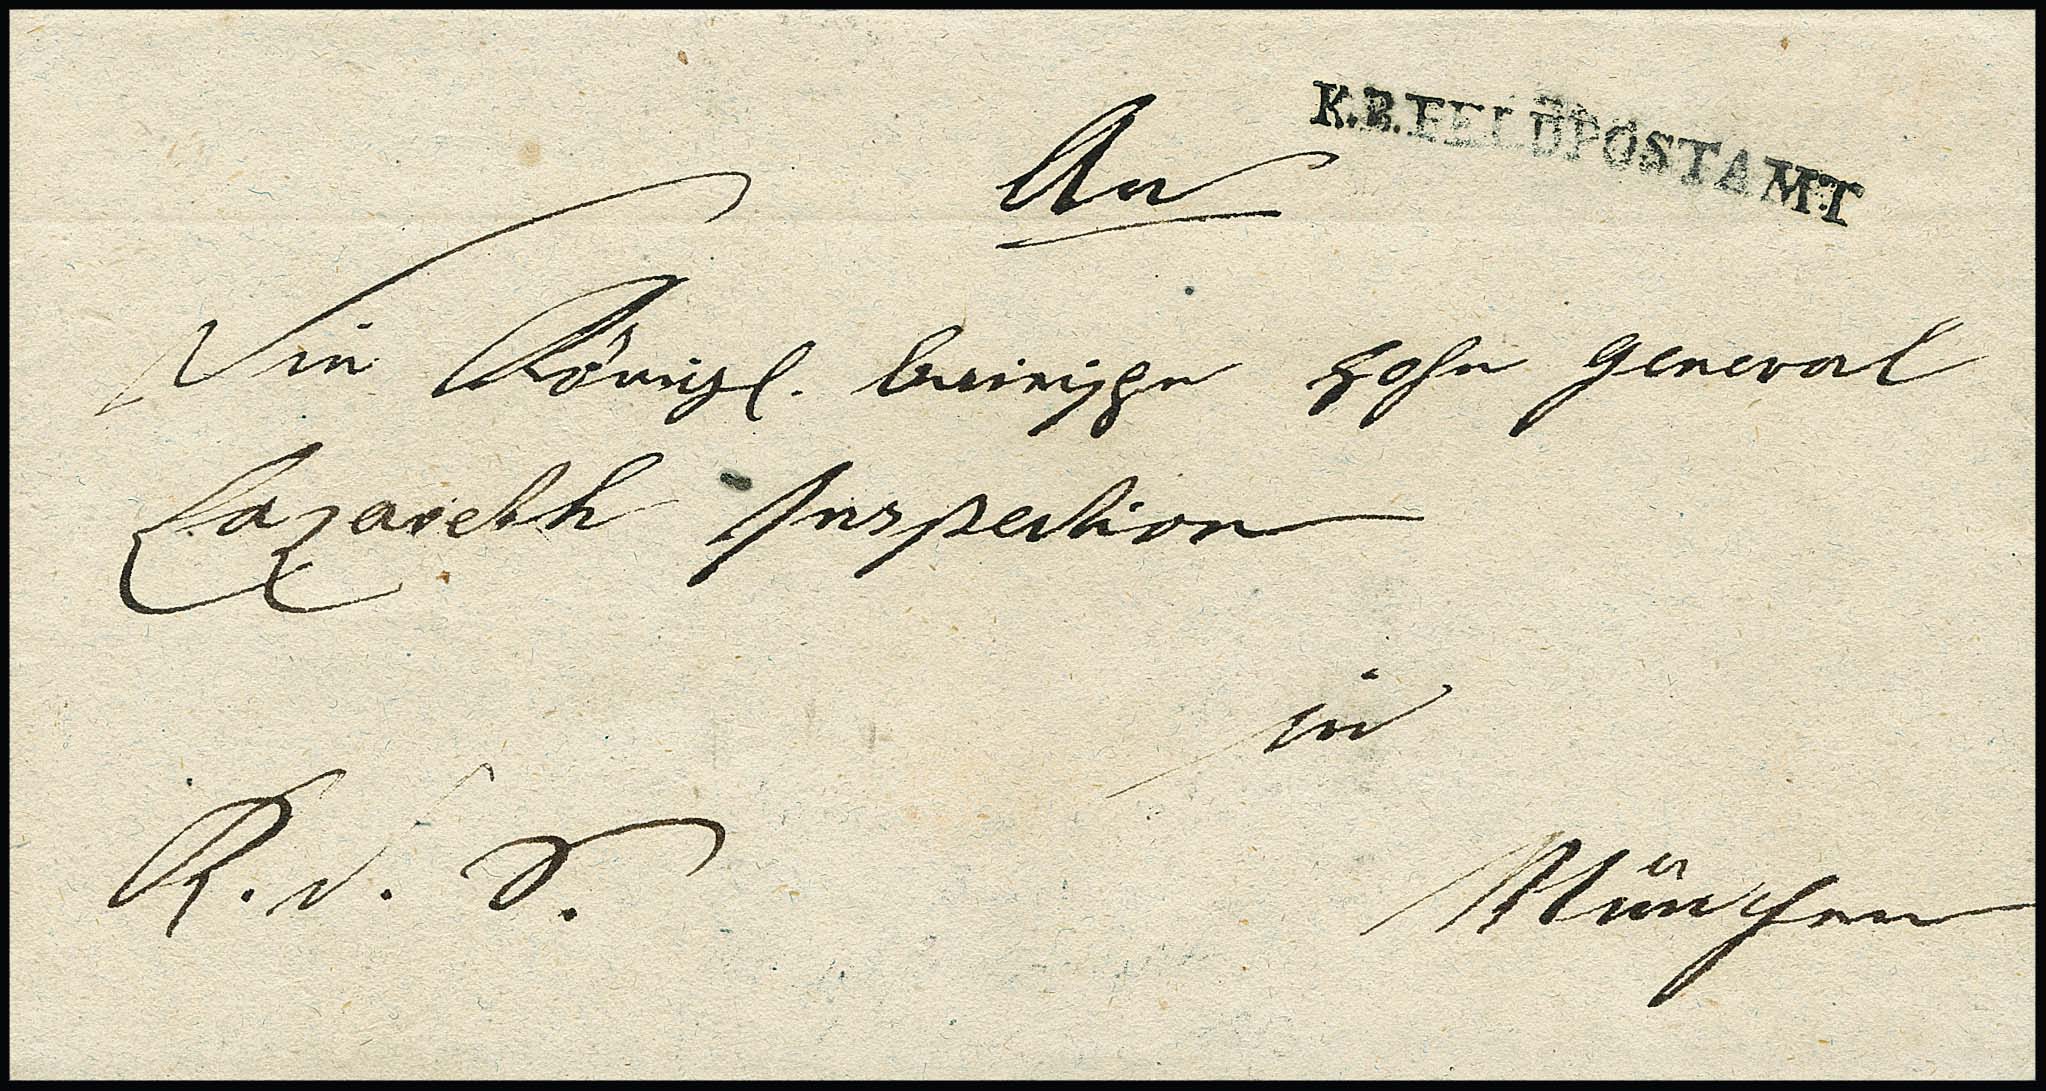 K.B.FELDPOSTAMT
An
Die Königl. baierische hohe General
Lazareth Inspection
in
R. d. S.
München